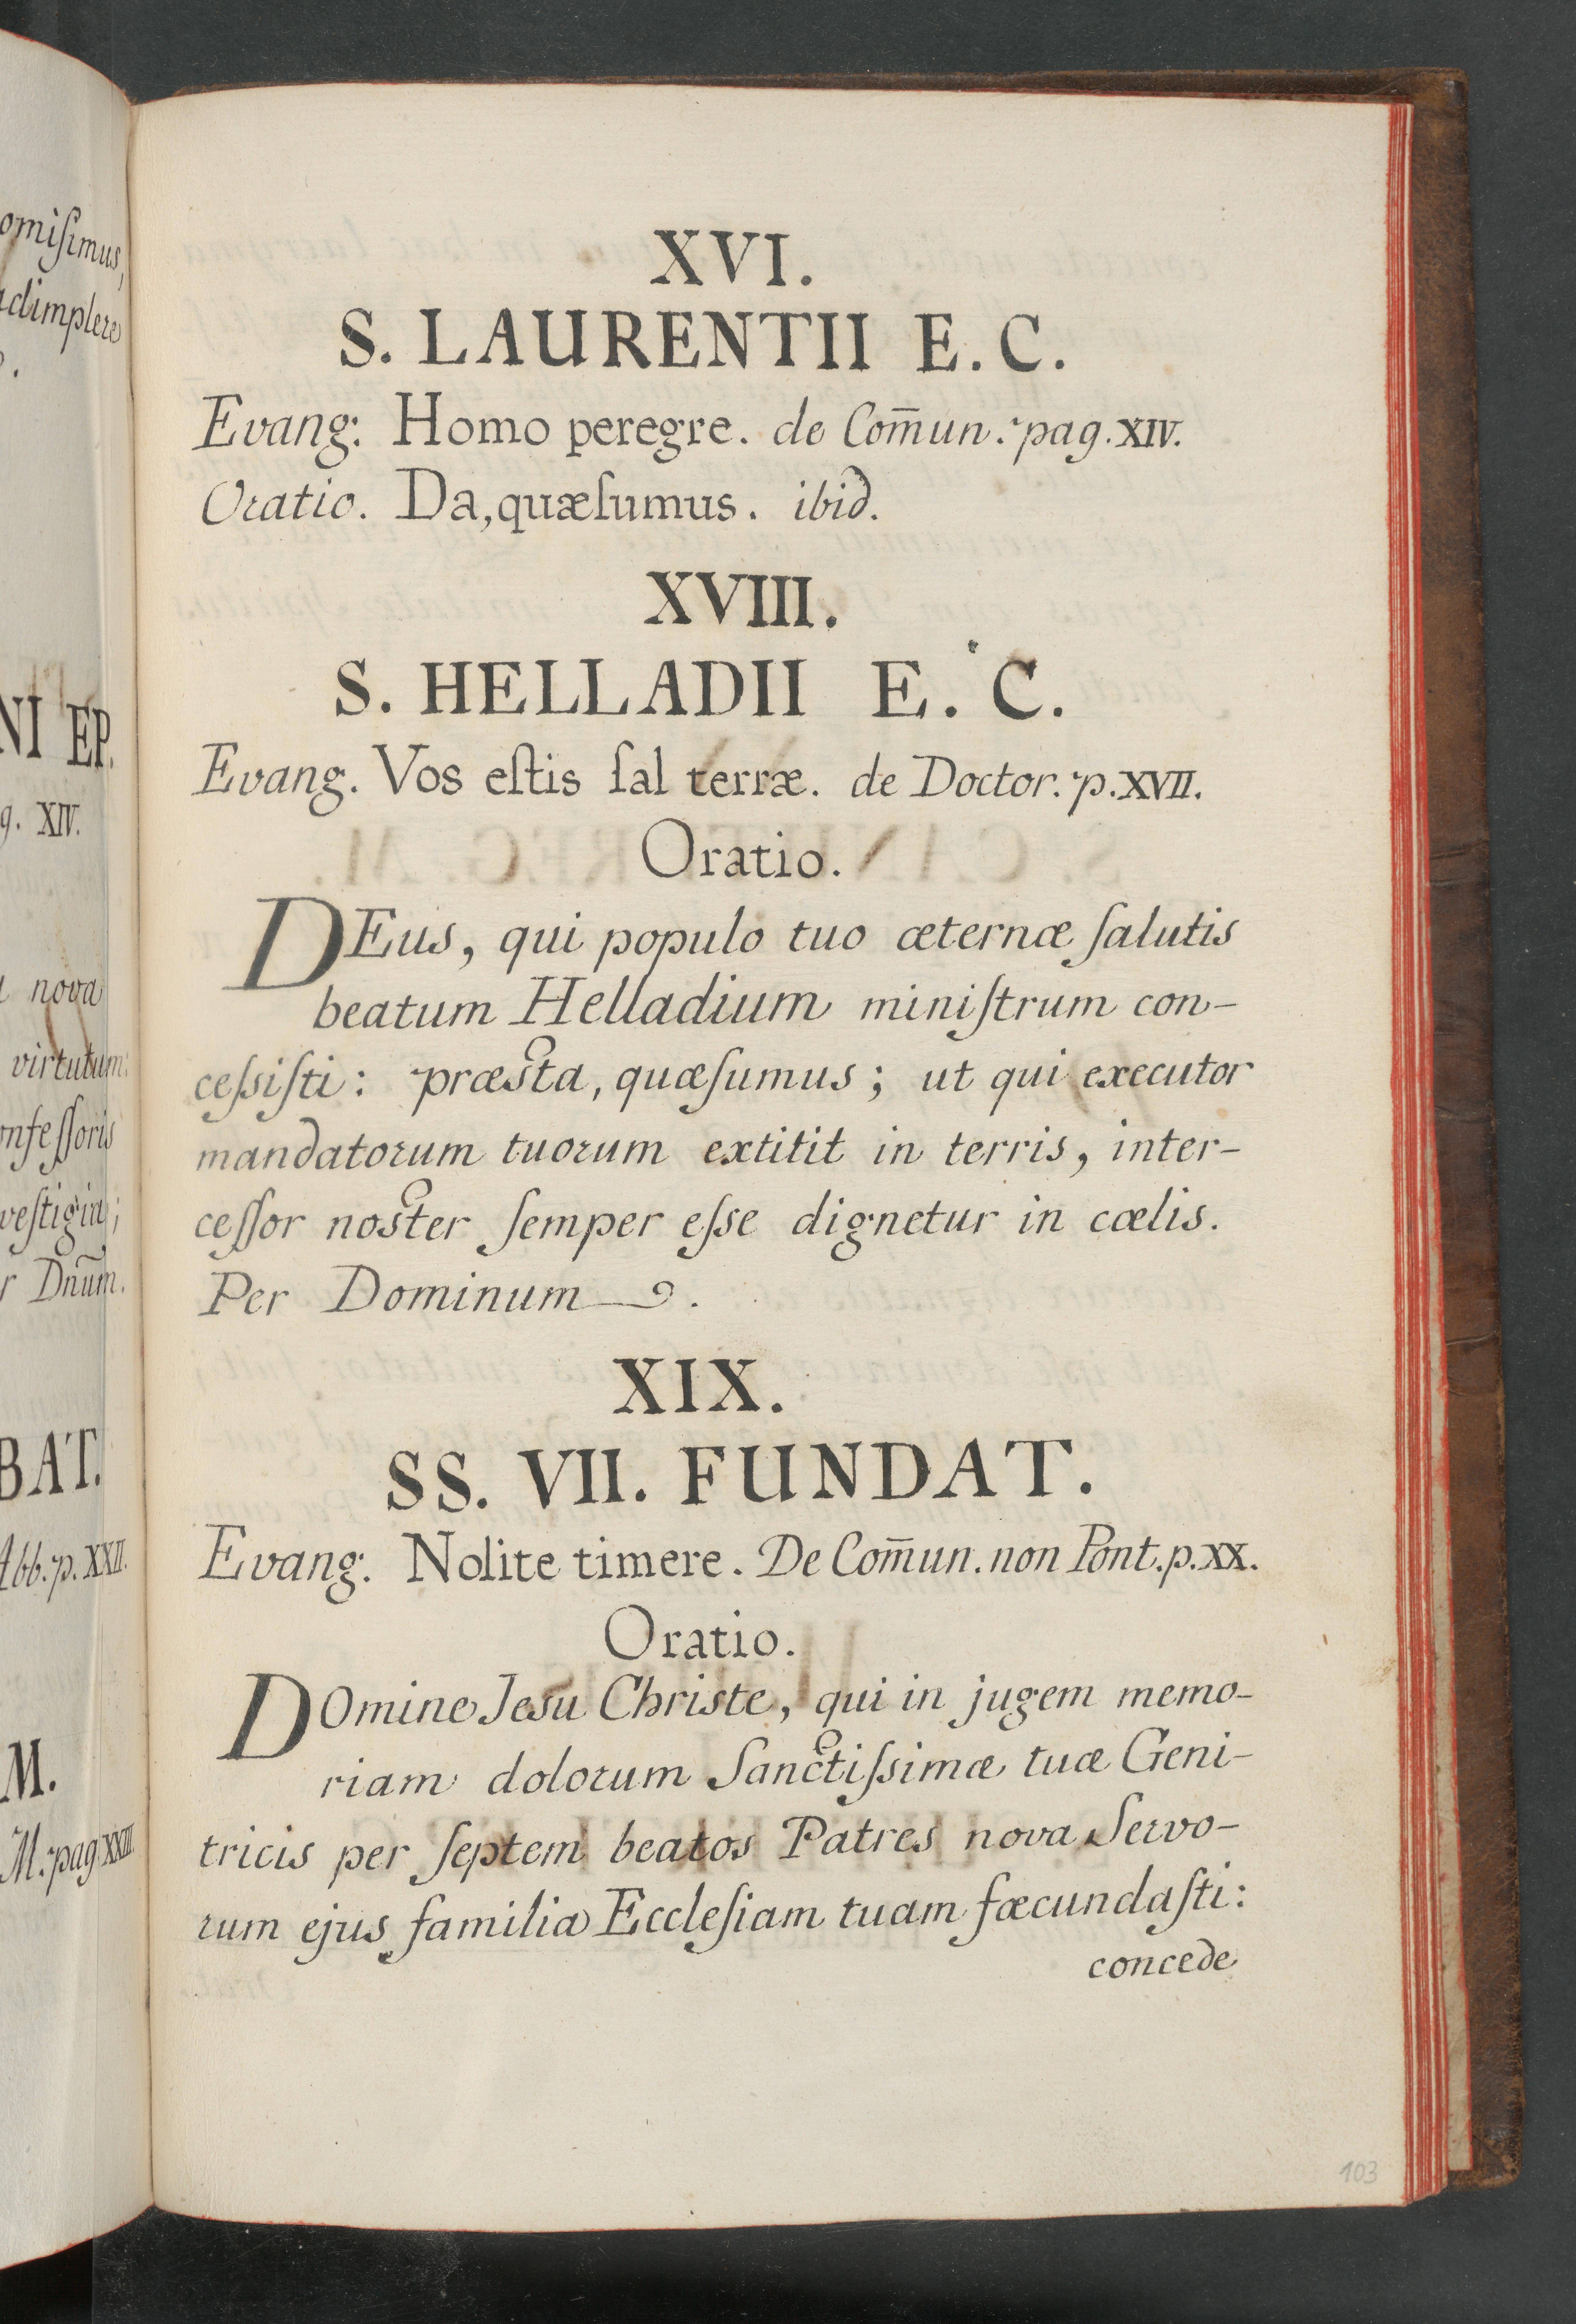 omiſimus,
adimplere
NI EP.
g. XIV.
nova
virtutum:
onfeſſoris
veſtigia;
r Dnūm.
BAT.
Abb. p. XXII.
M.
M. pag. XXIII
XVI.
S. LAURENTII E. C.
Evang: Homo peregre. de Com̄un. pag. XIV.
Oratio. Da, quæſumus. ibid.
XVIII.
S. HELLADII E. C.
Evang. Vos eſtis ſal terræ. de Doctor. p. XVII.
Oratio.
DEus, qui populo tuo æternæ ſalutis
beatum Helladium miniſtrum con-
ceſsiſti: præsta, quæſumus; ut qui executor
mandatorum tuorum extitit in terris, inter-
ceſſor noster ſemper eſse dignetur in cœlis.
Per Dominum.
XIX.
SS. VII. FUNDAT.
Evang. Nolite timere. De Com̄un. non Pont. p. XX.
Oratio.
DOmine Jesu Christe, qui in jugem memo-
riam dolorum Sanctiſsimæ tuæ Geni-
tricis per ſeptem beatos Patres nova Servo-
rum ejus familia Eccleſiam tuam fœcundaſti:
concede
103